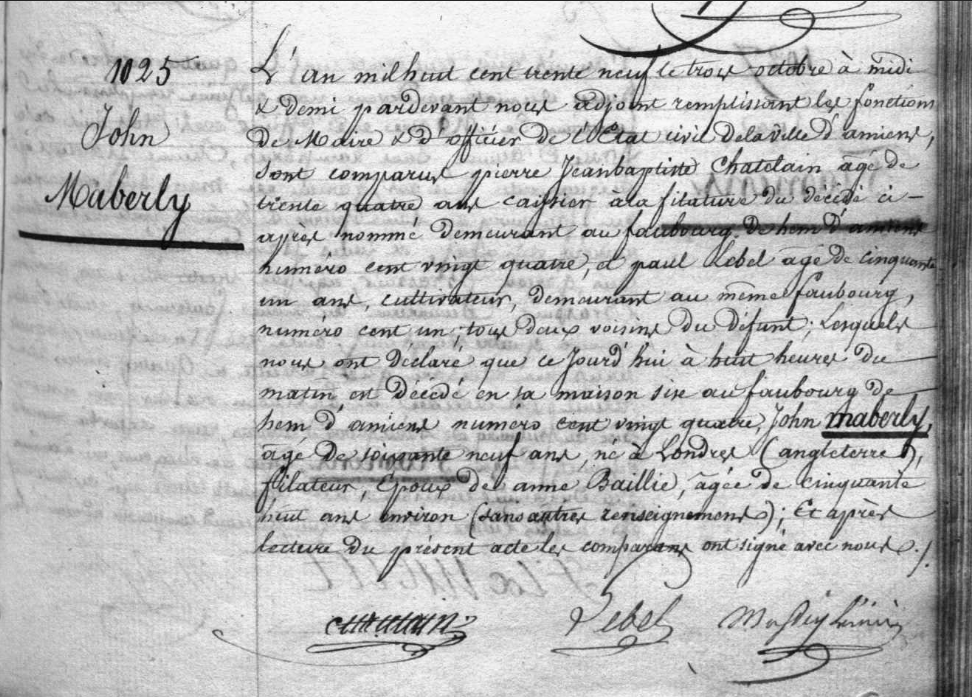 1025
John
Maberly
L'an mil huit cent trente neuf le trois octobre à midi
& demi pardevant nous adjoint remplissant les fonctions
de Maire & d'officier de l'Etat civil de la ville d'amiens,
sont comparus pierre Jeanbaptiste Chatelain âgé de
trente quatre ans caissier à la filature du décédé ci-
après nommé demeurant au faubourg de hem d'amiens
numéro cent vingt quatre, et paul Lebel âgé de cinquante
un ans, cultivateur, demeurant au même faubourg,
numéro cent un, tous deux voisins du défunt; Lesquels
nous ont déclaré que ce Jourd'hui à huit heures du
matin est décédé en sa maison sise au faubourg de
hem d'amiens numéro cent vingt quatre, John maberly,
âgé de soixante neuf ans, né à Londres (angleterre),
filateur, Epoux de anne Baillie, âgée de cinquante
huit ans environ (sans autres renseignemens); Et après
lecture du présent acte les comparans ont signé avec nous ./.
Lebel